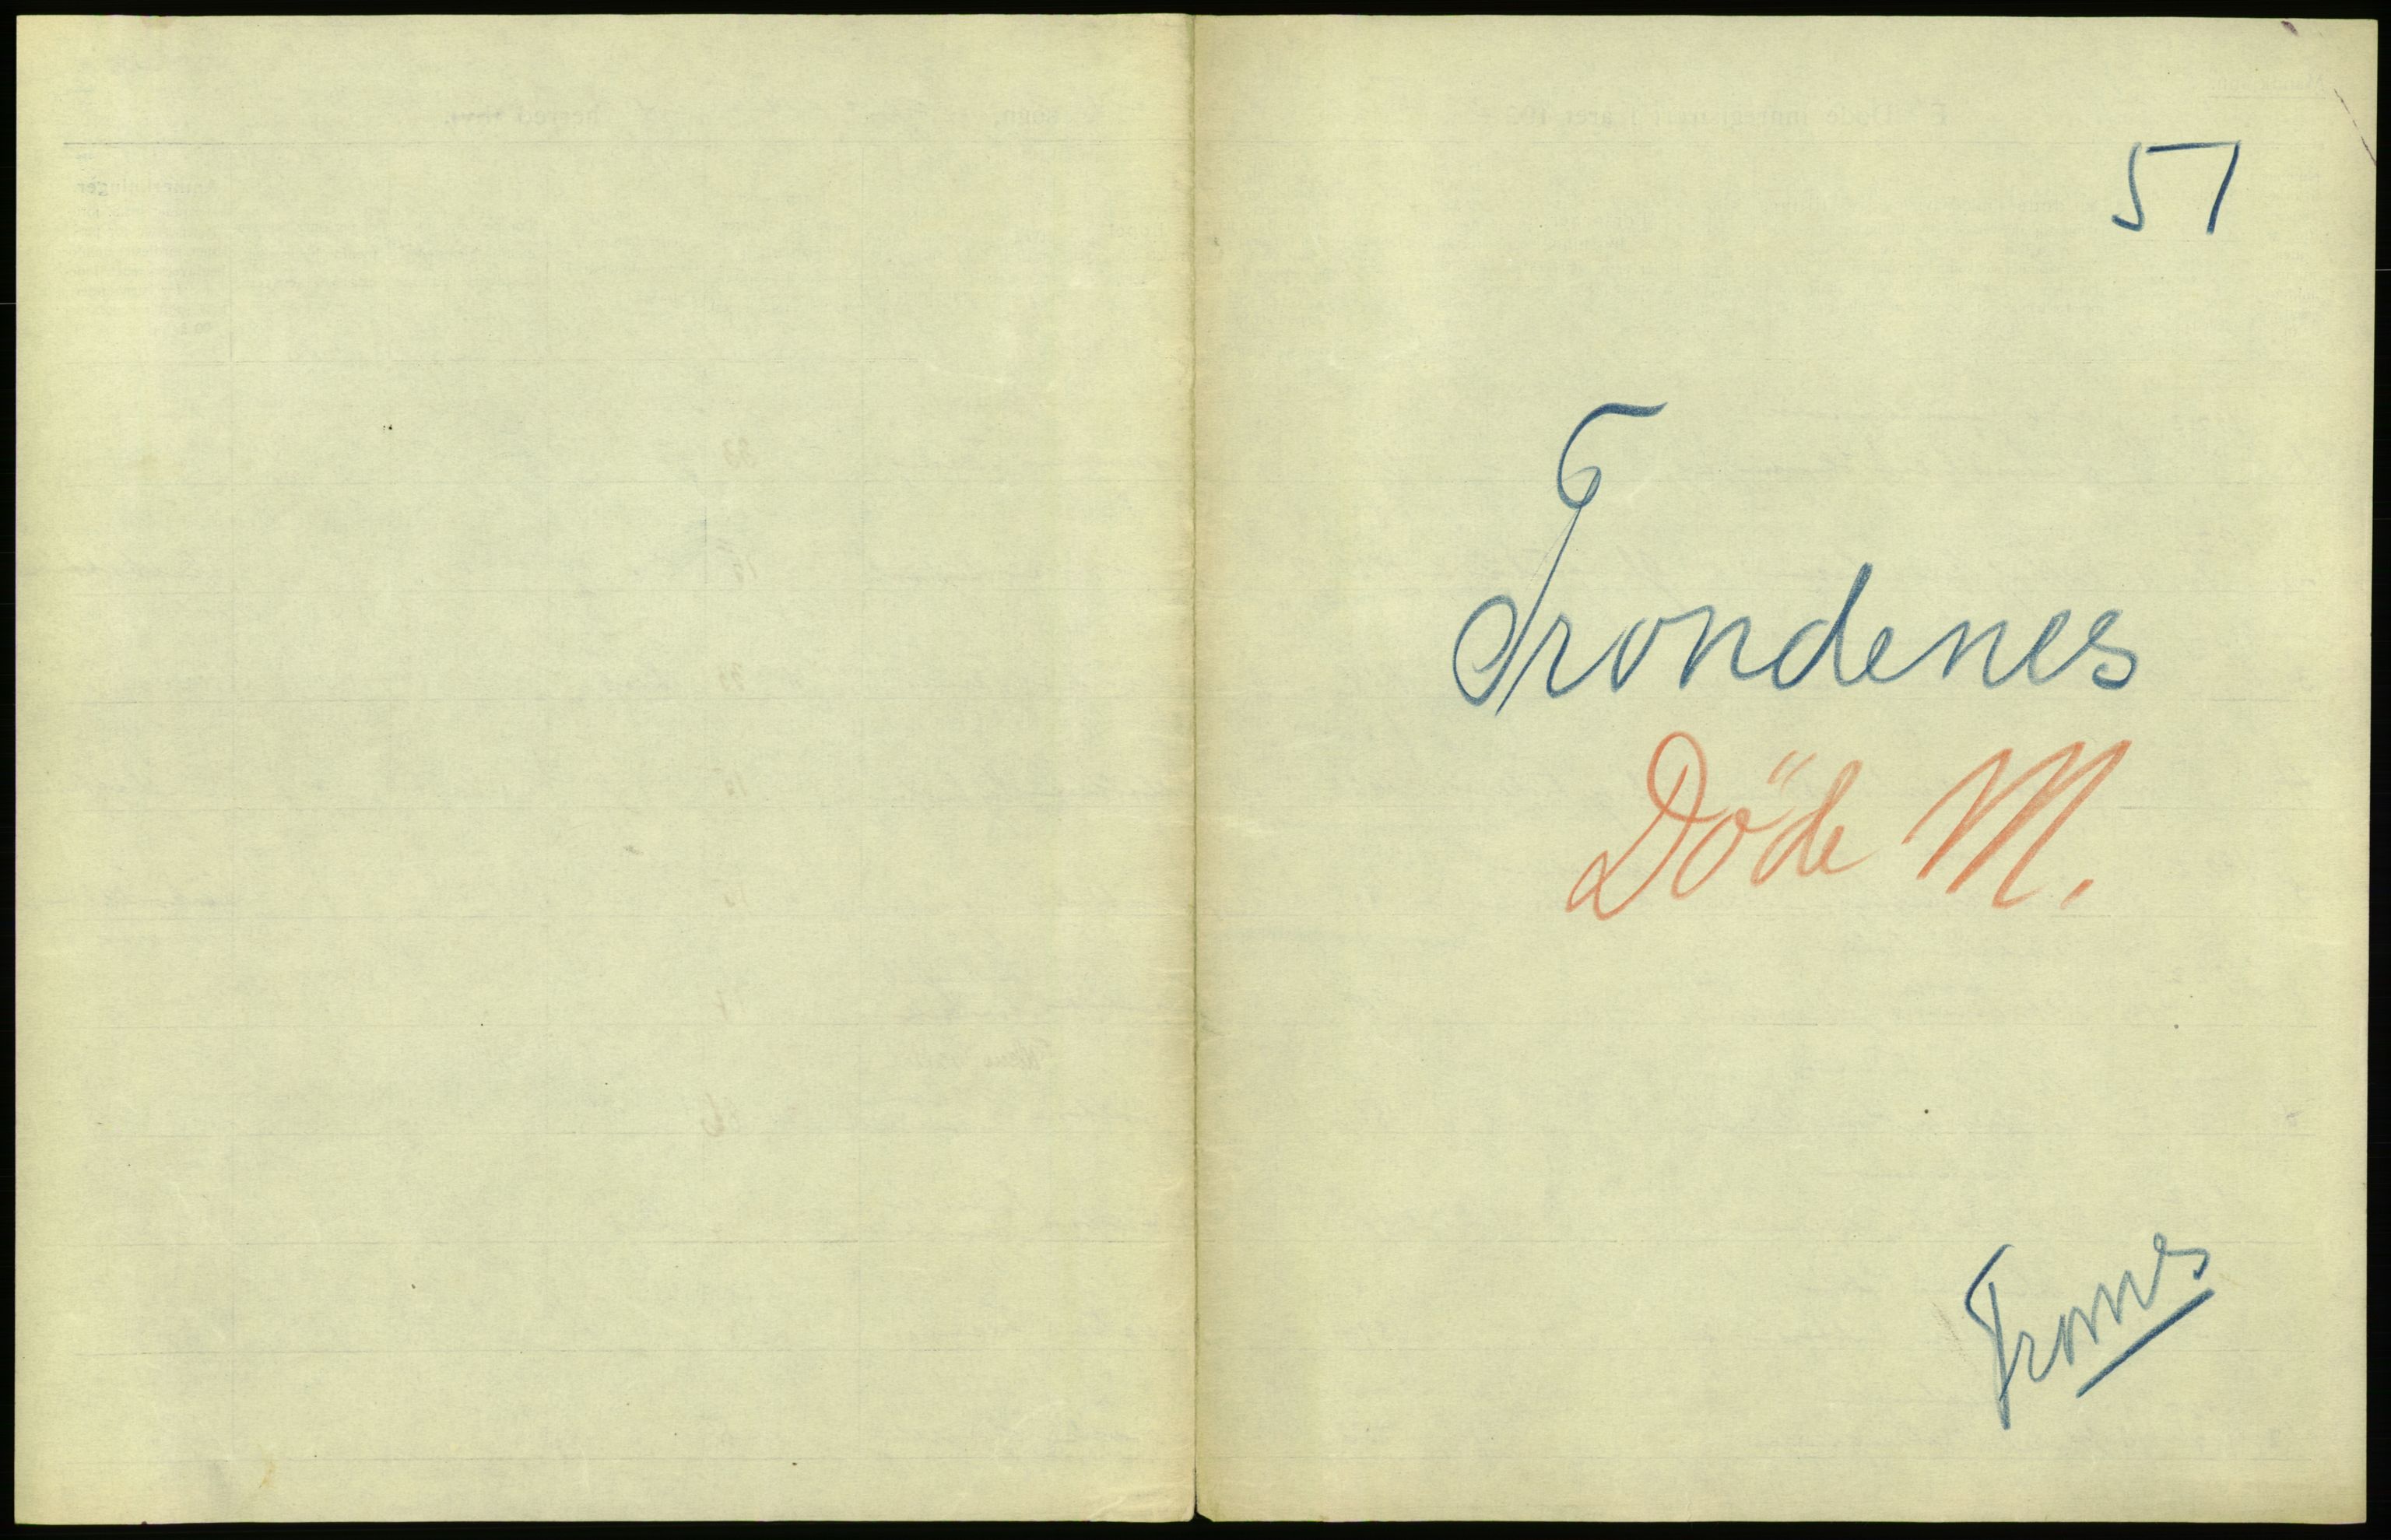 51
Trondenes
Döde M.
Troms